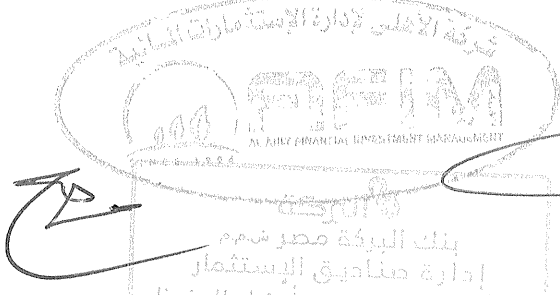 شركة الأهلي لإدارة الإستثمارات المالية
AFIM
AL AHLY FINANCIAL INVESTMENT MANAGEMENT
SINCE 1994
البركة
بنك البركة مصر ش.م.م
إدارة صناديق الإستثمار